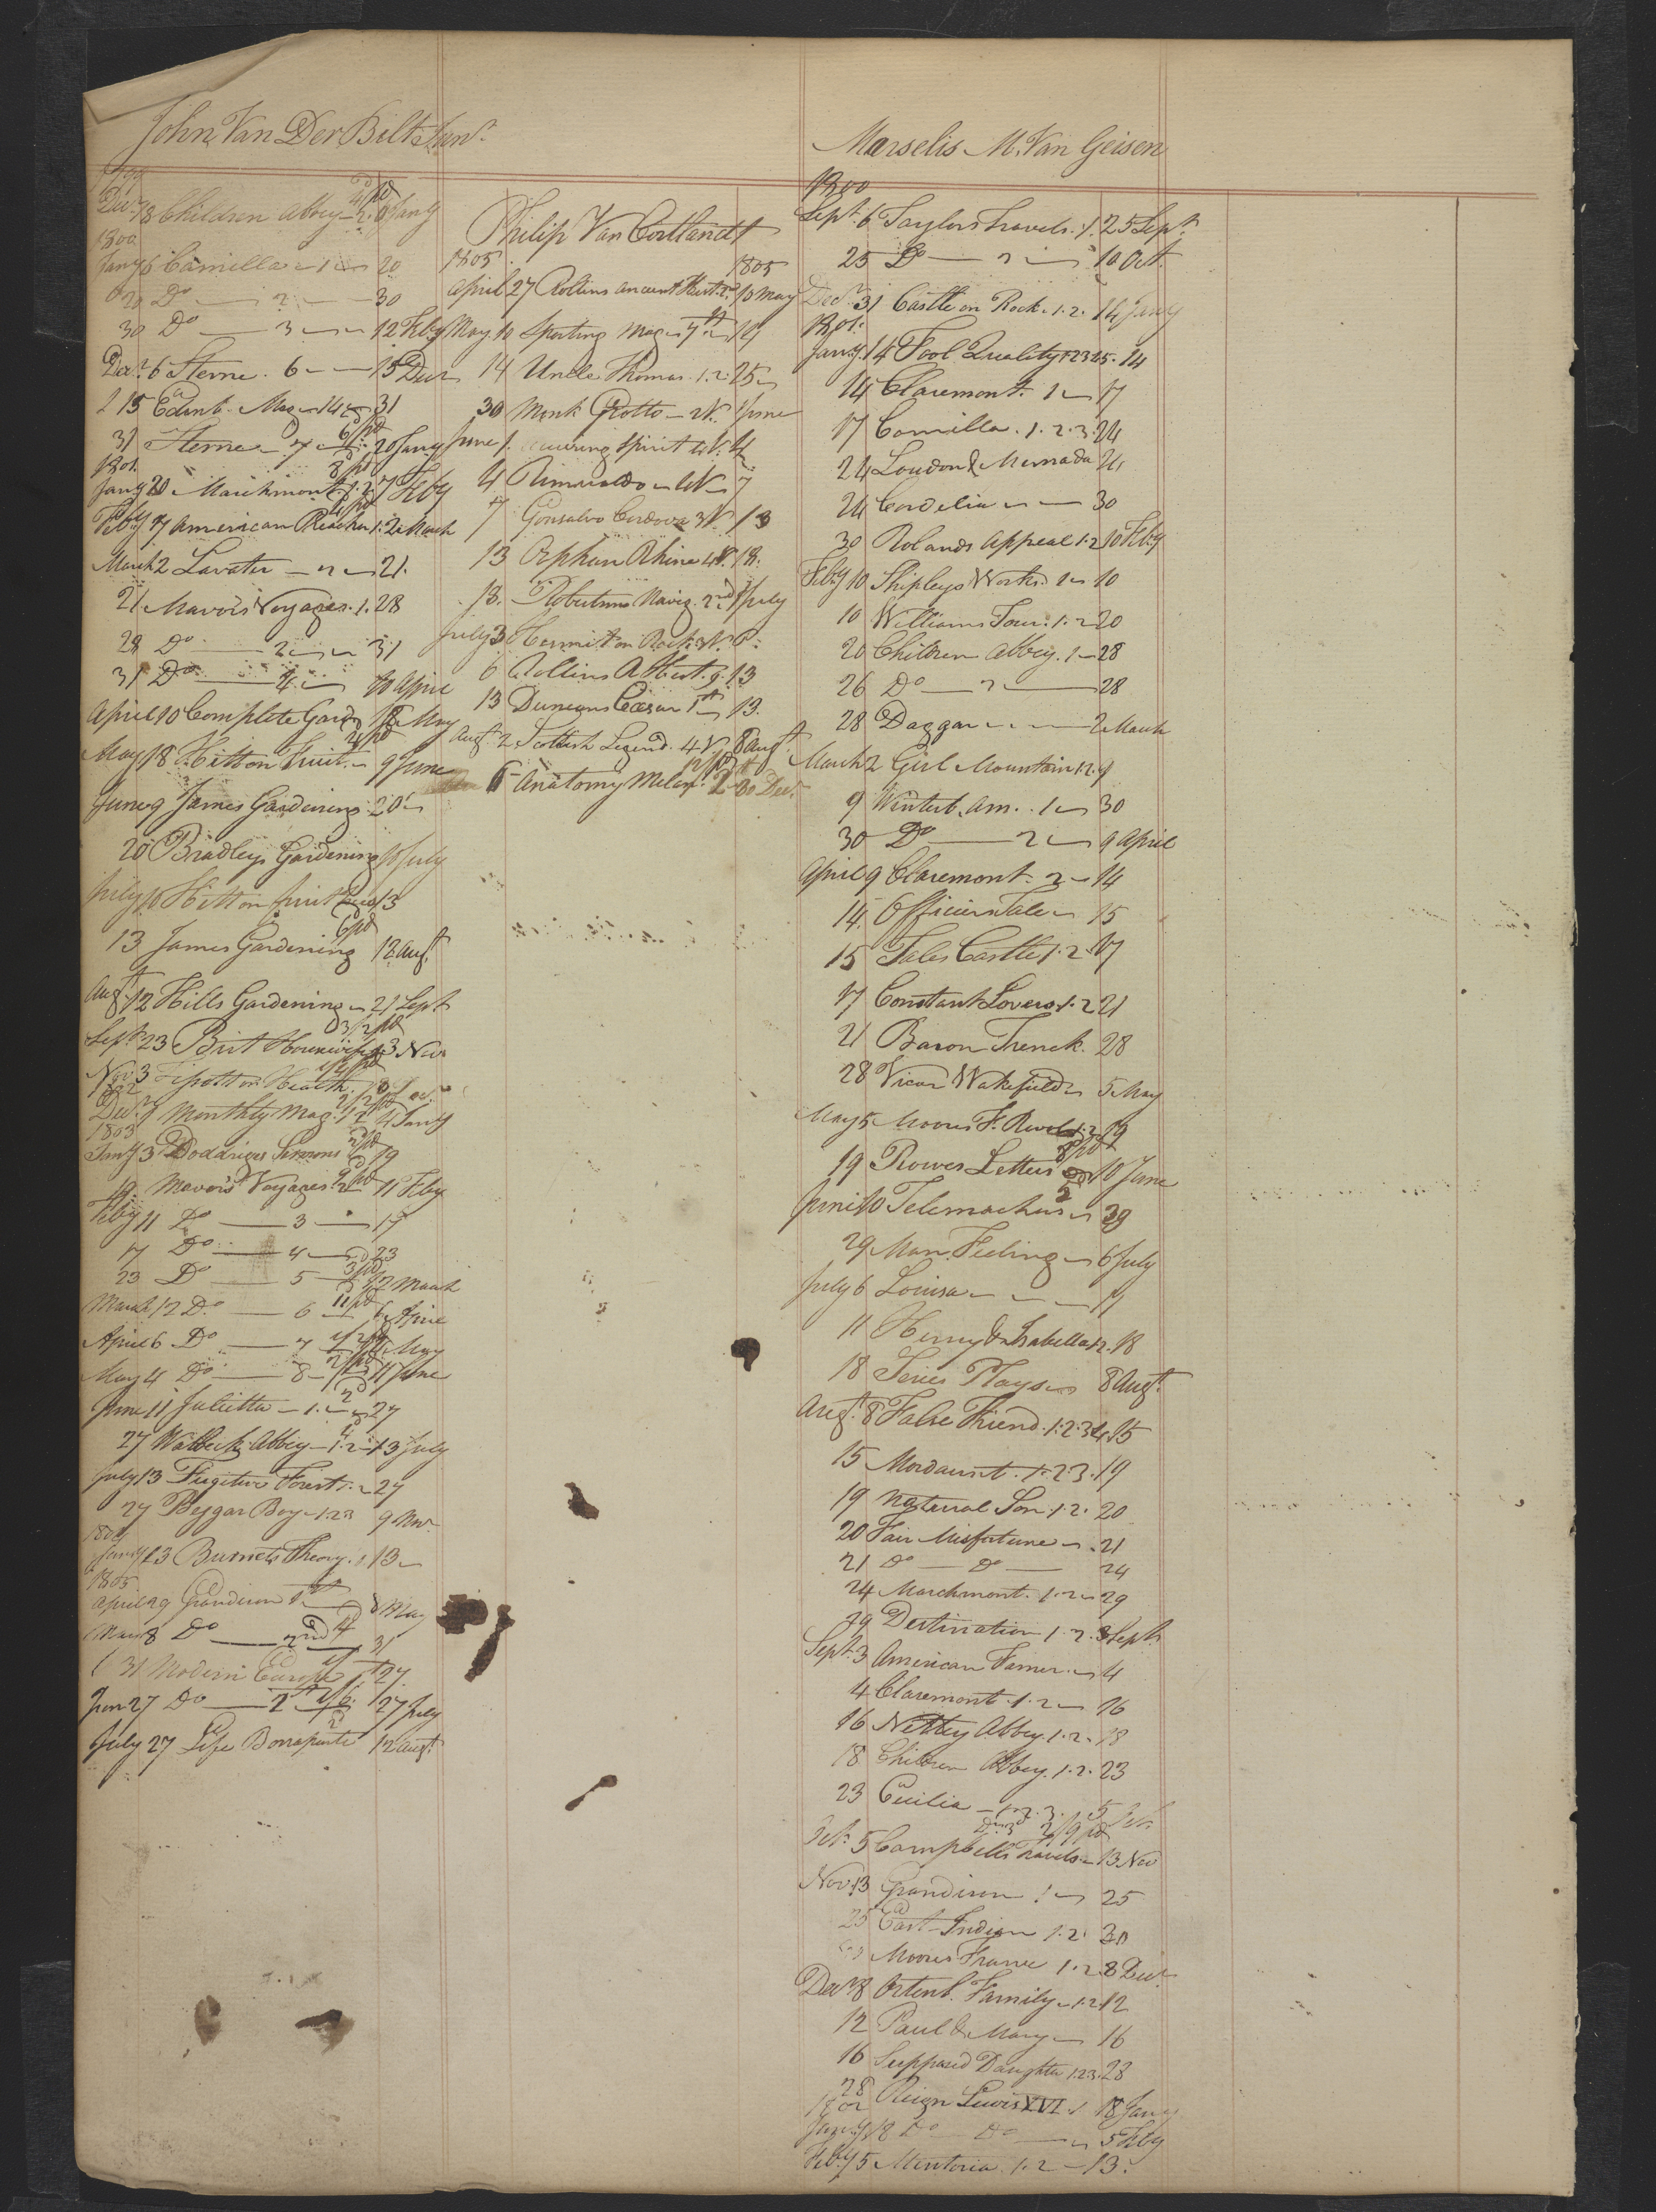 John Van Der Bilt Junr.
Decr. 28 Children Abbey 2. 6 Jany
1800
Jany 6 Camilla 1 20
20 Do 2 30
30 Do 3 12 Feby
Decr. 6 Sterne. 6 15 Decr
15 Edinb. Mag 14 31
31 Sterne 7 20 Jany
1801.
Jany 20 Marchmont 1.2. 7 Feby
Feby 7 American Preacher 1. 2 March
March 2 Lavater 21.
21 Mavors Voyages. 1. 28
28 Do 2 31
31 Do 4 10 April
April 10 Complete Gardr 18 May
May 18 Hitt on Fruit. 9 June
June 9 James Gardening 20
20 Bradleys Gardening 10 July
July 10 Hitt on fruit 13
6/pd
13 James Gardening 12 Augt.
Augt. 12 Hills Gardening 21 Sept
3/2 pd
Sept. 23 Brit Housewife 3 Nov
Nov 3 Tissott on Health.
Decr. Monthly Mag. 4 Jany
1803
Jany 3 Doddriges Sermons 19
19 Mavors Voyages 2 11 Feby
Feby 11 Do 3 17
17 Do 4 23
23 Do 5 12 March
March 12 Do 6 6 April
April 6 Do 7 4 May
May 4 Do 8 11 June
June 11 Julietta 1. 27
27 Walbeck Abbey 1.2 13 July
July 13 Fugitive Forest 27
27 Beggar Boy 1.2.3 9 Nov.
Jany 13 Burnets Theory. 1 13
1805
April 29 Grandison 1st 8 May
May 8 Do 2nd 31
31 Modern Europe 1st 27
June 27 Do 2 27 July
July 27 Life Bonaparte 12 Augt.
Philip Van Cortlandt
1805 1805
April 27 Rollins Ancient Hist. 2d 10 May
May 10 Sporting Mag 7th 14
14 Uncle Thomas. 1.2. 25
30 Monk Grotto 2V. 1 June
June 1. Spirit 4V. 4
4 Rimualdo 4V 7
7 Gonsalvo Cordova 3V. 13
13 Orphan Rhine 4V. 18.
18. Robertsons Navig. 2nd 3 July
July 3 Hermit on Rock 3V. 6.
6 Rollins A Hist. 9. 13
13 Duncans Caesar 1st 13.
Augt. 2 Scottish Legend. 4V 6 Augt.
6 Anatomy Melan. 2 30 Decr.
Marselis M. Van Geisen
1800
Sept. 6 Taylors Travels. 1. 25 Sept.
25 Do 2 10 Oct.
Decr. 31 Castle on Rock. 1.2. 14 Jany
1801.
Jany. 14 Fool Quality 1 2 3 4 5. 14
14 Claremont. 1 17
17 Camilla. 1.2.3. 24
24 Loudon & 24
24 Cordelia 30
30 Rolands Appeal 1.2 10 Feby
Feby 10 Shipleys Works. 1 10
10 Williams Tour. 1.2 20
20 Children Abbey. 1 28
26 Do 2 28
28 Daggar 2 March
March 2 Girl Mountain 1.2. 9
9 Winterb. Am. 1 30
30 Do 2 9 April
April 9 Claremont. 2 14
14. Officers Tales 15
15 Tales Castle 1.2 17
17 Constant Lovers 1.2 21
21 Baron Trenck. 28
28 Vicar Wakefield 5 May
May 5 Moores F. Revol. 1.2 19
8/pd
19 Rowes Letters 10 June
June 10 Telemachus 29
29 Man Feeling 6 July
July 6 Louisa 11
11 Henry & Isabella 1.2. 18
18 Series Plays 8 Augt.
Augt. 8 False Friend. 1.2.3.4. 15
15 Mordaunt. 1.2.3. 19
19 Natural Son. 1.2. 20
20 Fair Misfortune 21
21 Do Do 24
24 Marchmont. 1.2 29
29 Destination 1.2. 3 Sept.
Sept. 3 American Farmer. 4
4 Claremont. 1.2 16
16 Nettley Abbey. 1.2. 18
18 Children Abbey. 1.2. 23
23 Cecilia 1.2.3. 5 Oct.
Oct. 5 Campbells Travels 13 Nov
Nov. 13 Grandison 1 25
25 East Indian 1.2. 30
Moores France 1.2. 8 Decr
Decr 8 Ortenb. Family 1.2 12
12 Paul & Mary 16
16 Supposed Daughter 1.2.3. 28
28 Reign Lewis XVI. 1 18 Jany
1802
Jany. 18 Do Do 5 Feby
Feby 5 Mentoria. 1.2 13.